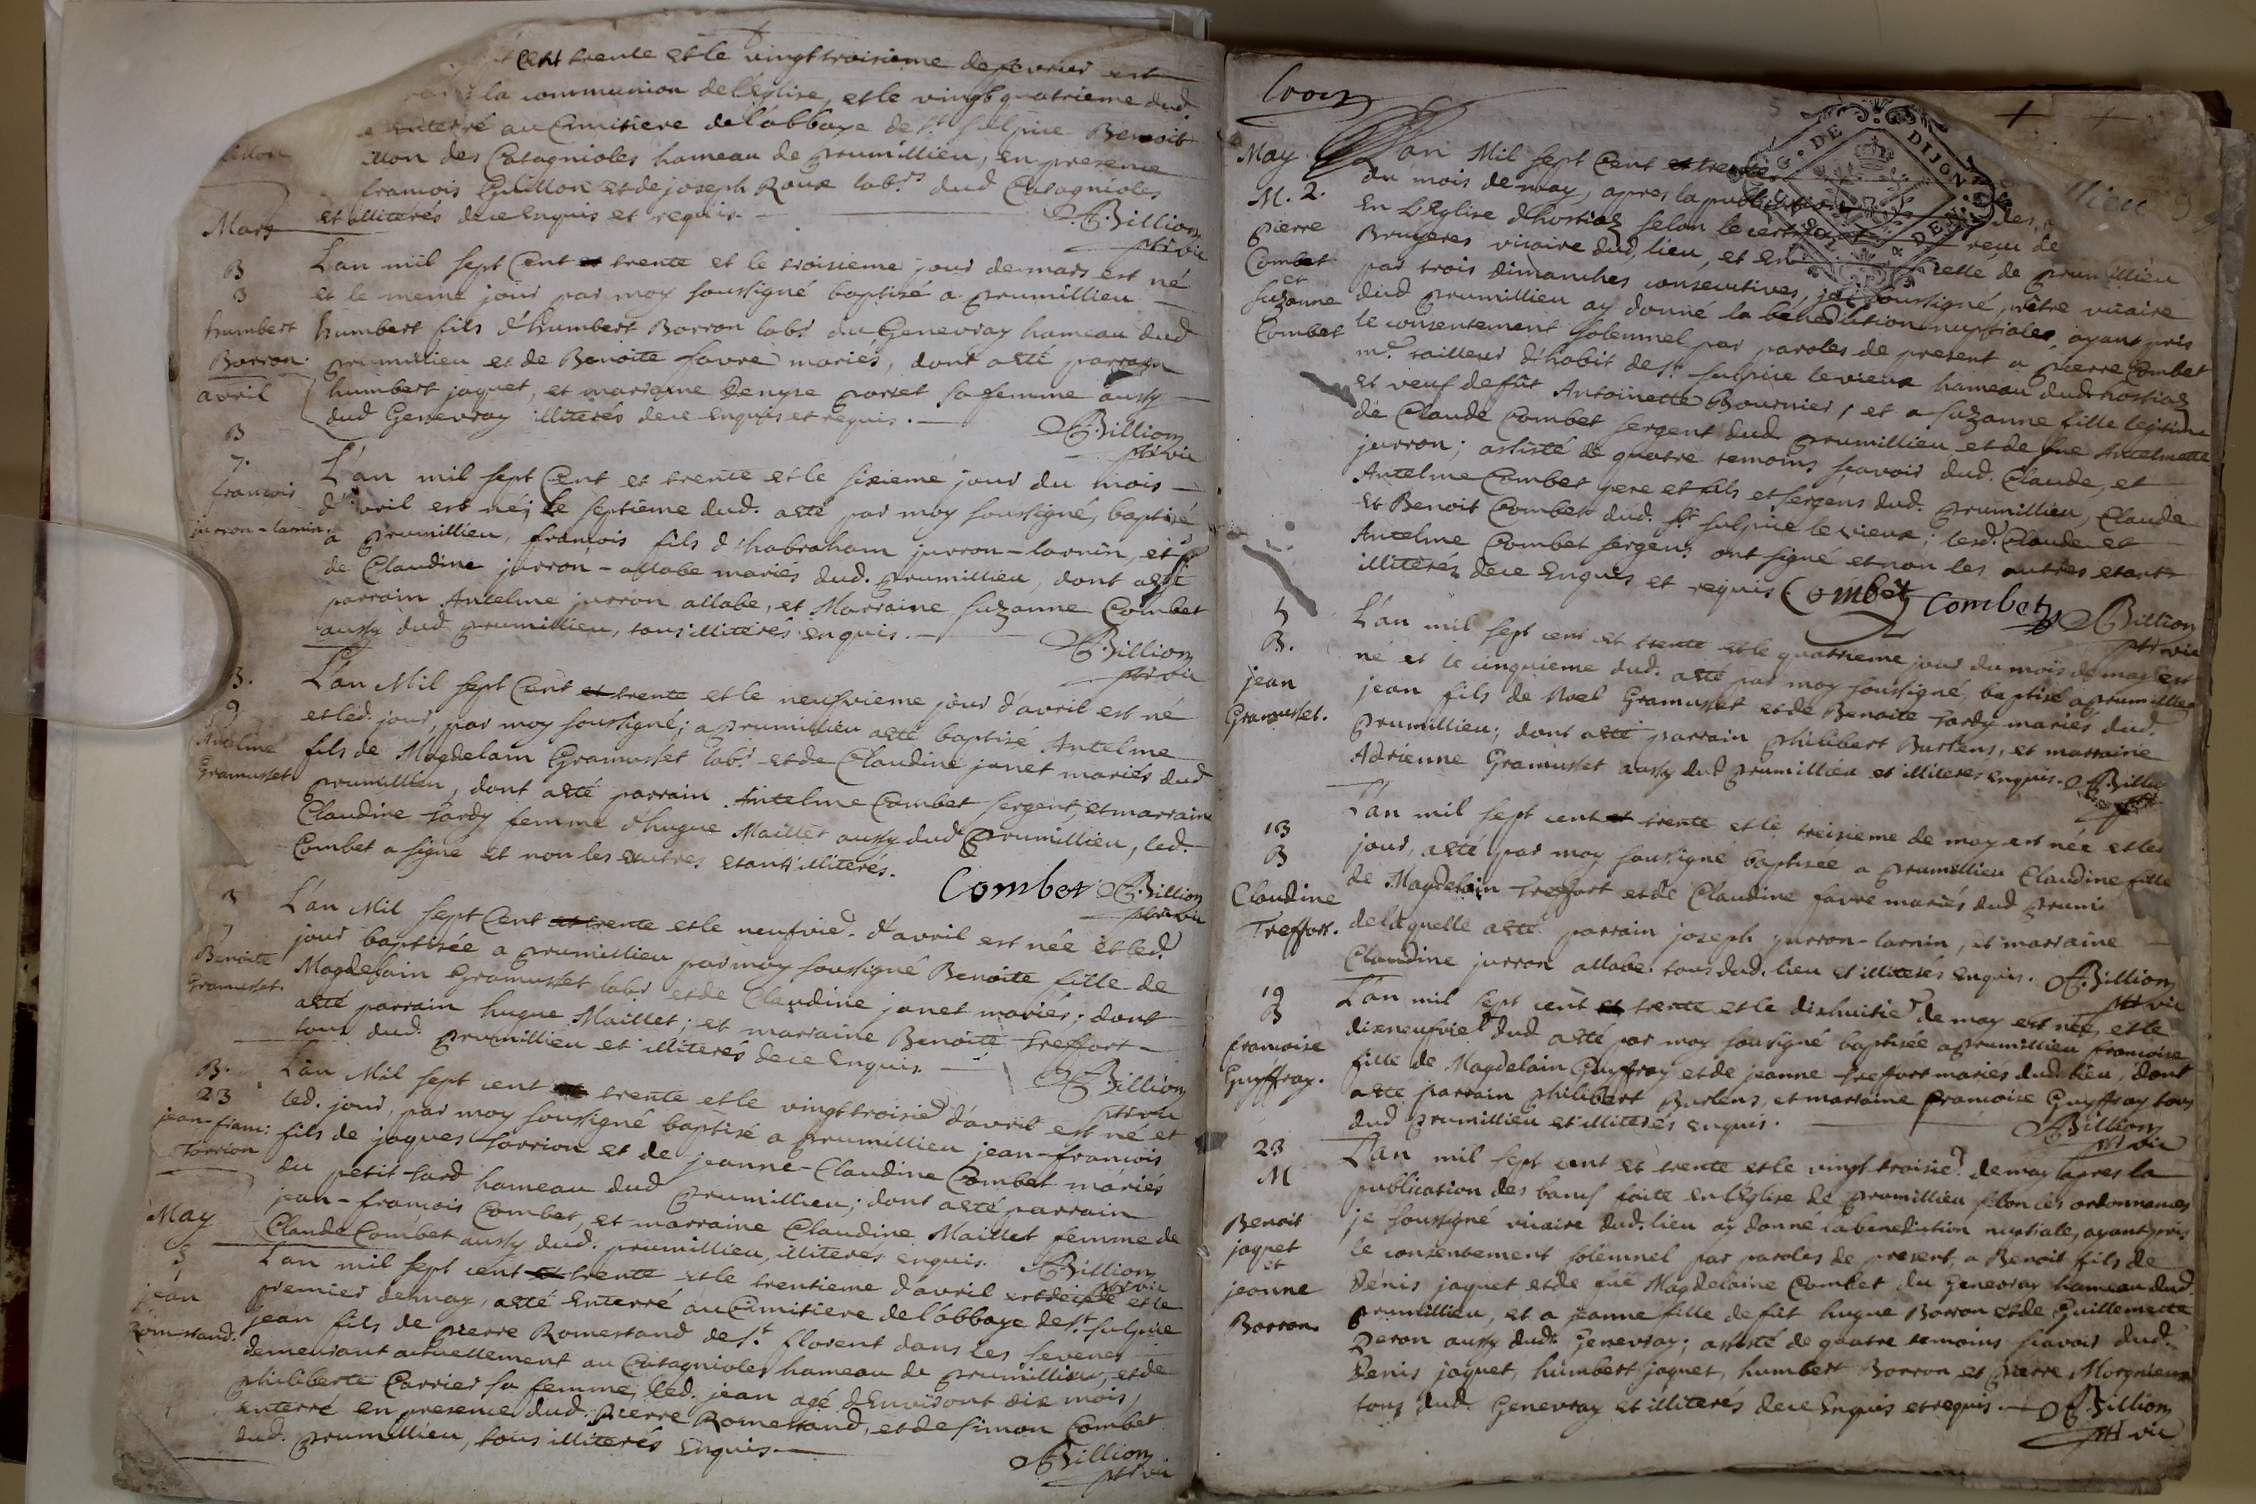 Cent trente et le vingt troisieme de fevrier est
la communion de l'Eglise, et le vingt quatrieme dud.
Enterré au Cimitiere de l'abbaye de St. Sulpice Benoit
des Catagnioles hameau de prumillieu, en presence
francois Guillon et de joseph Roux labrs. dud Catagnioles
et illiterés de ce Enquis et requis.
Billion
ptre vic
Mars
B
3
humbert
Borron.
L'an mil sept Cent et trente et le troisieme jour de mars est né
et le meme jour par moy soussigné baptisé a prumillieu
humbert fils d'humbert Borron labr. du Genevray hameau dud
prumillieu et de Benoite favre mariés, dont a esté parrain
humbert jaquet, et marraine Denyse porret sa femme aussy
dud Genevray illiterés de ce Enquis et requis.
Billion
ptre vic
avril
B
7.
francois
jurron-larnin.
L'an mil sept Cent et trente et le sixieme jour du mois
d'avril est né; le septieme dud. a esté par moy soussigné, baptisé
a prumillieu, francois fils d'habraham jurron-larnin, et
de Claudine jurron-allabe mariés dud. prumillieu, dont a esté
parrain Antelme jurron allabe, et Marraine Suzanne Combet
aussy dud prumillieu, tous illiterés enquis.
Billion
ptre vic
B.
9
Antelme
Gramusset
L'an Mil sept Cent et trente et le neufvieme jour d'avril est né
et led. jour, par moy soussigné; a prumillieu a esté baptisé Antelme
fils de Magdelain Gramusset labr. et de Claudine janet mariés dud
prumillieu, dont a esté parrain Antelme Combet sergent, et marraine
Claudine tardy femme d'hugue Maillet aussy dud prumillieu, led.
Combet a signé et non les autres estant illiterés.
Combet Billion
ptre vic
B
9
Benoite
Gramusset.
L'an Mil sept Cent et trente et le neufvie. d'avril est née et led
jour baptisée a prumillieu par moy soussigné Benoite fille de
Magdelain Gramusset labr. et de Claudine janet mariés; dont
a esté parrain hugue Maillet; et marraine Benoite treffort
tous dud. prumillieu et illiterés de ce Enquis.
Billion
ptre vic
B.
23
jean-fran:
torrion
L'an Mil sept cent et trente et le vingt troisie. d'avril est né et
led. jour, par moy soussigné baptisé a prumillieu jean-francois
fils de jaques torrion et de jeanne-Claudine Combet mariés
du petit-tard hameau dud prumillieu; dont a esté parrain
jean-francois Combet, et marraine Claudine Maillet femme de
Claude Combet aussy dud. prumillieu, illiterés enquis.
Billion
ptre vic
May
jean
Romestand.
L'an mil sept cent et trente et le trentieme d'avril est decedé et le
premier de may, a esté Enterré au Cimitiere de l'abbaye de St. Sulpice
jean fils de pierre Romestand de St. florent dans les sevenes
demeurant actuellement au Catagnioles hameau de prumillieu, et de
philiberte Carrier sa femme, led. jean agé d'Environt dix mois,
enterré en presence dud. pierre Romestand, et de simon Combet
dud. prumillieu, tous illiterés Enquis.
Billion
ptre vic
G. DE DIJON
May.
M. 2.
pierre
Combet
et
Suzanne
Combet
L'an Mil sept Cent et trente
du mois de may, apres la publication des
En L'Eglise d'hostiaz selon le certificat receu de
Bruyeres vicaire dud, lieu, et En celle de prumillieu
par trois dimanches consecutives, je soussigné, ptre vicaire
dud prumillieu ay donné la bénédiction nuptiale, ayant pris
le consentement solemnel par paroles de present a pierre Combet
me. tailleur d'habit de St. sulpice le vieux hameau dud hostiaz
et veuf de fût Antoinette Bournier, et a Suzanne fille legitime
de Claude Combet sergent dud prumillieu et de fue Antelmette
jurron; assisté de quatre temoins sçavoir dud. Claude, et
Antelme Combet pere et fils et sergens dud. prumillieu, Claude
et Benoit Combet dud. St. sulpice le vieux; lesd. Claude et
Antelme Combet sergens ont signé et non les autres estant
illiterés de ce Enquis et requis Combet Combet Billion
ptre vic
5
B.
jean
Gramusset.
L'an mil sept cent et trente et le quatrieme jour du mois de may est
né et le cinquieme dud. a esté par moy soussigné, baptisé a prumillieu
jean fils de Noel Gramusset et de Benoite tardy mariés dud.
prumillieu; dont a esté parrain philibert Burlens, et marraine
Adrienne Gramusset aussy dud prumillieu et illiteres enquis. Billion
13
B
Claudine
Treffort.
L'an mil sept cent et trente et le treisieme de may est née et led
jour, a esté par moy soussigné baptisée a prumillieu Claudine fille
de Magdelain treffort et de Claudine favre mariés dud prumi
de laquelle a esté parrain joseph jurron-larnin, et marraine
Claudine jurron allabe. tous dud. lieu et illiterés enquis. Billion
ptre vic
19
B
francoise
Guyffray.
L'an mil sept cent et trente et le dixhuitie. de may est née, et le
dixneufvie. dud a esté par moy soussigné baptisée a prumillieu francoise
fille de Magdelain Guyffray et de jeanne treffort maries dud. lieu, dont
a este parrain philibert Burlens, et marraine francoise Guyffray tous
dud prumillieu et illiterés enquis.
Billion
ptre vic
23
M
Benoit
jaquet
et
jeanne
Borron.
L'an mil sept cent et trente et le vingt troisie. de may apres la
publication des bans faite en L'Eglise de prumillieu selon les ordonnances
je soussigné vicaire dud. lieu ay donné la benediction nuptiale, ayant pris
le consentement solemnel par paroles de present, a Benoit fils de
Dénis jaquet et de fue Magdelaine Combet du Genevray hameau dud.
prumillieu, et a jeanne fille de fût hugue Borron et de Guillemette
Peron aussy dud. Genevray; assisté de quatre temoins sçavoir dud.
Denis jaquet, humbert jaquet, humbert Borron et pierre Morgnieux
tous dud. Genevray et illiterés de ce Enquis et requis. Billion
ptre vic